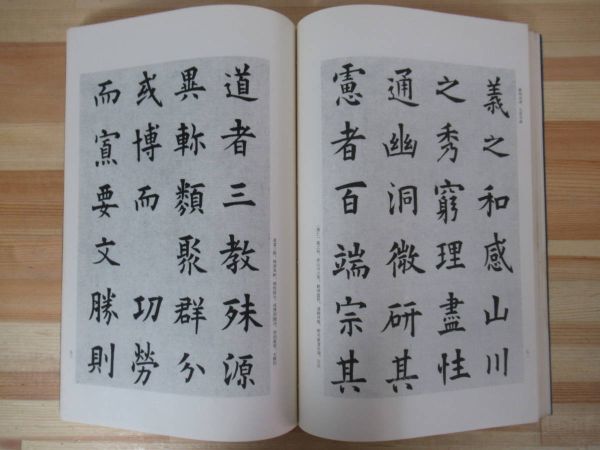 義之和感山川
之秀窮理盡性
通幽洞微研其
慮者百端宗其
道者三教殊源
異軫類聚群分
或博而功勞
而寡要文勝則